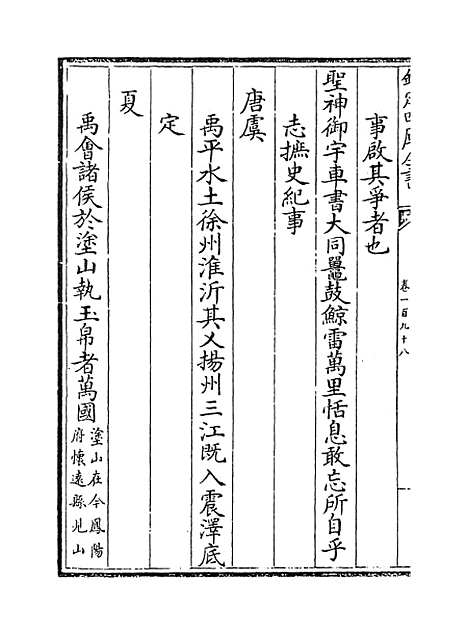 欽定四庫全書
卷一百九十八
事啟其爭者也
聖神御宇車書大同鼉鼓鯨雷萬里恬息敢忘所自乎
志摭史紀事
唐虞
禹平水土徐州淮沂其乂揚州三江既入震澤底
定
夏
禹會諸侯於塗山執玉帛者萬國塗山在今鳳陽
府懷遠縣北山